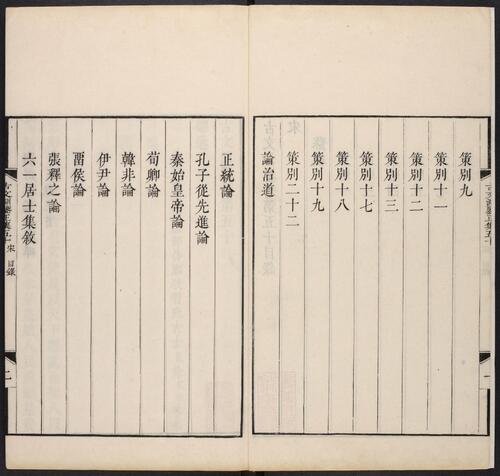 策別九
策別十一
策別十二
策別十三
策別十七
策別十八
策別十九
策別二十二
論治道
正統論
孔子從先進論
秦始皇帝論
荀卿論
韓非論
伊尹論
畱侯論
張釋之論
六一居士集敘
宋 目錄
二